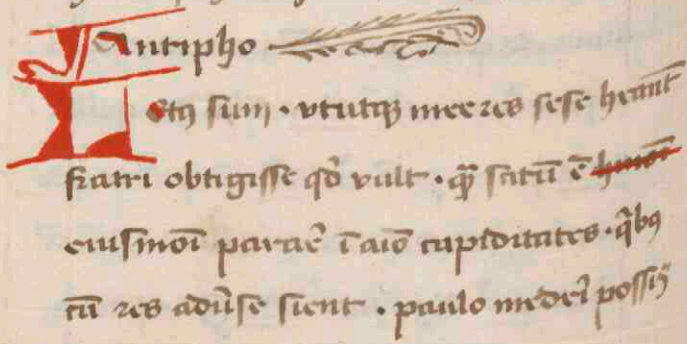 Antipho
Letꝰ sum · vtutqꝫ mee res sese heant̄
fratri obtigisse qd̄ vult · q̄ꝫ scitū ē h̶m̶o̶i̶
eiusmoī parar̄e ī aīo cupiditates · q̄ibꝫ
cū res adūse sient · paulo medeī possis